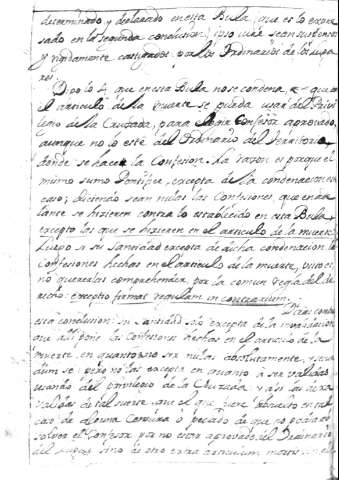 determinado, y declarado en esta Bula, que es lo expre-
sado en la segunda conclusion,
y rigidamente castigados, por los Ordinarios de los luga-
res.
Digo lo 4. que en esta Bula no se condena, que en
el articulo de la muerte se pueda usar del Privi-
legio de la Cruzada, para elegir Confesor aprovado,
aunque no lo esté del Ordinario del Territorio,
donde se hace la Confesion. La razon es porque el
mismo sumo Pontifice, excepta de la condenacion este
caso; diciendo sean nulas las Confesiones, que en ade-
lante se hizieren contra lo establecido en esta Bula
excepto las que se hizieren en el articulo de la muerte.
Luego si su Santidad excepta de dicha condenacion las
Confesiones hechas en el articulo de la muerte, visto es
no quererlas comprehender, por la comun regla del de-
recho: exceptio firmat regulam in contrarium.
Diras contra
esta conclusion: su Santidad solo excepta de la
que alli pone las Confesiones hechas en el articulo de la
muerte, en quanto a no ser nulas absolutamente,
pero no las excepta en quanto a ser validas
usando del privilegio de la Cruzada y asi las dexa
validas de tal suerte que el que fuere absuelto en tal
caso de alguna Censura o pecado de que no podia ab-
solver el Confesor por no estar aprovado del Ordinario
del lugar, sino de otro extra articulum mortis